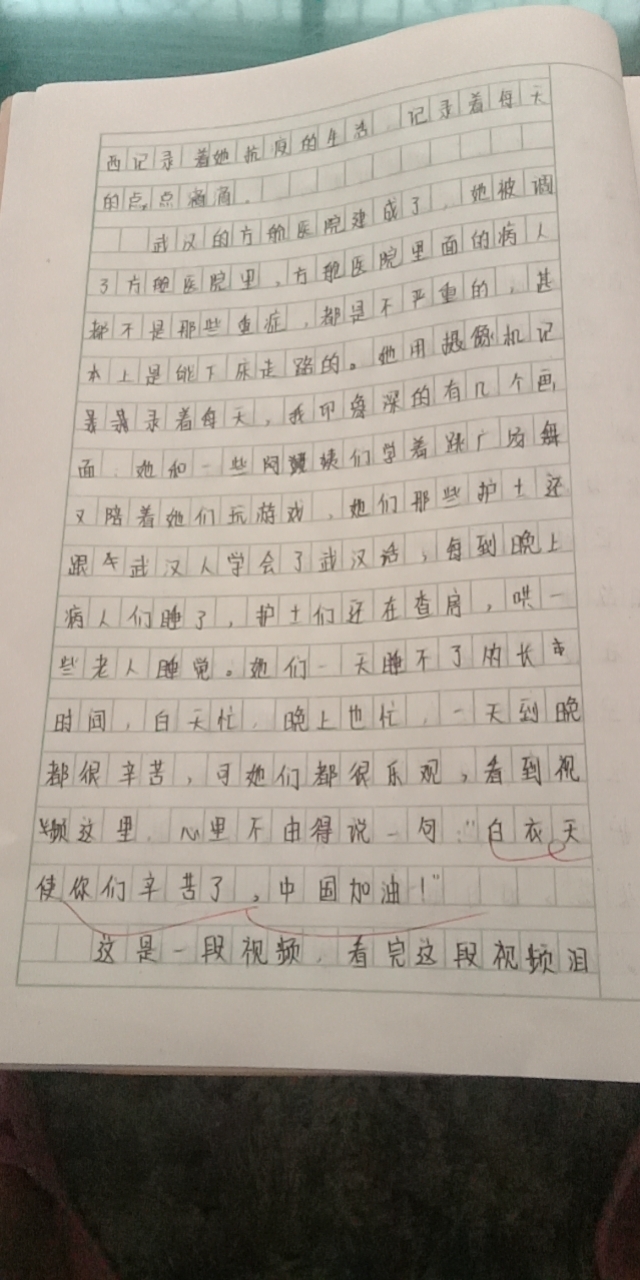 西记录着她抗疫的生活,记录着每天
的点点滴滴。
武汉的方舱医院建成了,她被调
了方舱医院里,方舱医院里面的病人
都不是那些重症,都是不严重的,甚
本上是能下床走路的。她用摄像机记
录着每天,我印象深的有几个画
面:她和一些阿姨们学着跳广场舞
又陪着她们玩游戏,她们那些护士还
跟武汉人学会了武汉话,每到晚上
病人们睡了,护士们还在查房,哄一
些老人睡觉。她们一天睡不了的长
时间,白天忙,晚上也忙,一天到晚
都很辛苦,可她们都很乐观,看到视
频这里,心里不由得说一句:“白衣天
使你们辛苦了,中国加油!”
这是一段视频,看完这段视频泪